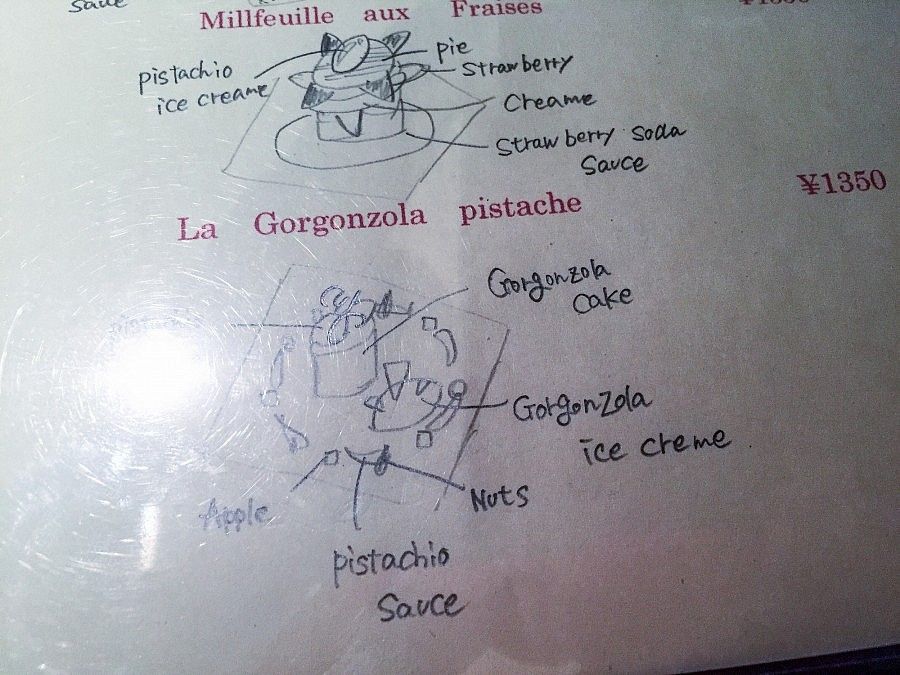 Sauce
Millfeuille aux Fraises
pistachio
ice creame
pie
Strawberry
Creame
Strawberry soda
Sauce
La Gorgonzola pistache
¥1350
Gorgonzola
cake
Gorgonzola
ice creme
Apple
Nuts
pistachio
Sauce